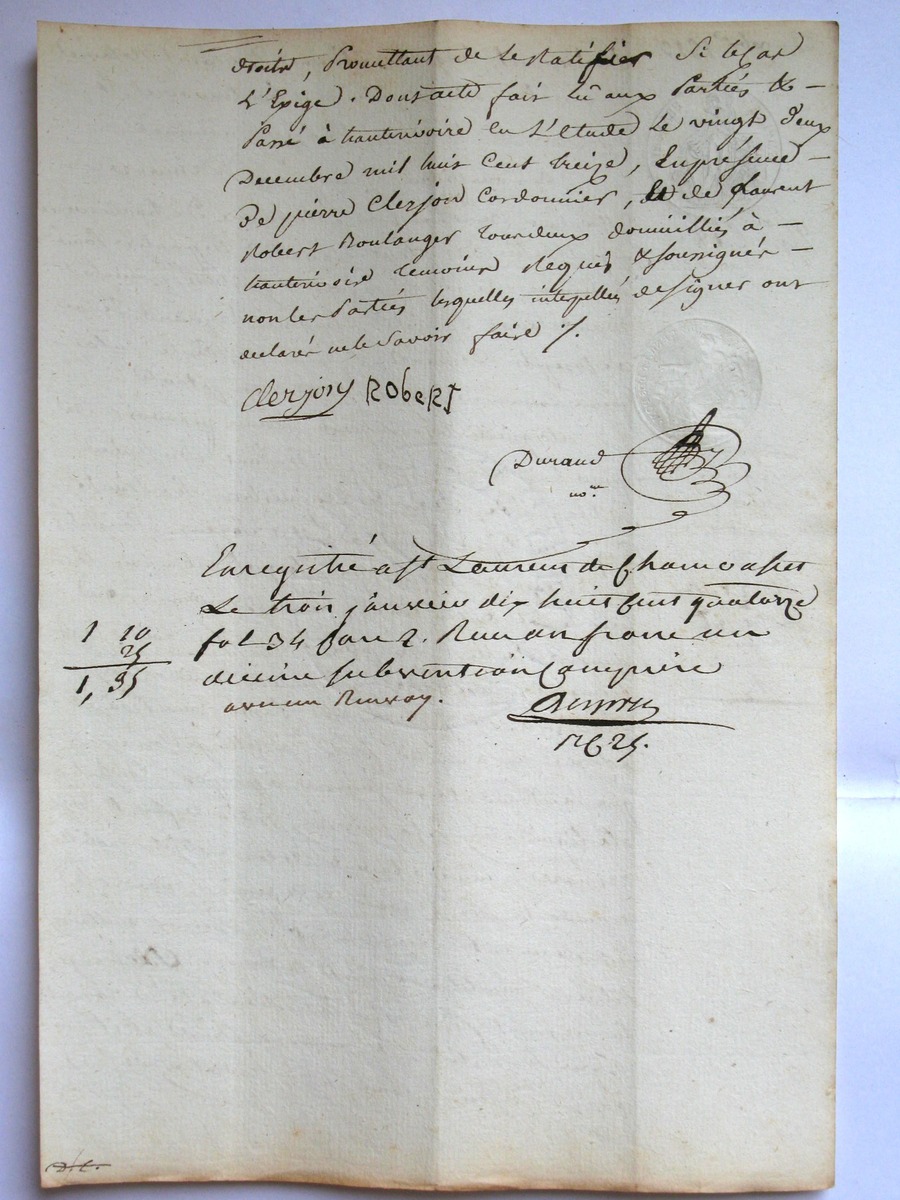 droits, Promettant de le Ratifier Si le Cas
L'Exige. Dont acte fait lû aux Parties & —
Passé à hauterivoire en L'étude Le vingt deux
Decembre mil huit Cent treize, En présence —
De pierre Clerjon Cordonnier, et de Laurent
Robert Boulanger tous deux domiciliés à —
hauterivoire temoins Requis & soussignés —
non les Parties lesquelles interpellées de signer ont
declaré ne le Savoir faire ./.
Clerjon RObeRt
Durand
no.re
Enregistré a St Laurent de Chamousset
Le trois janvier dix huit cent quatorze
1 10 fol 34 Case 2. Recu un franc un
25 decime subvention Comprise
1, 35 avec un Renvoy.